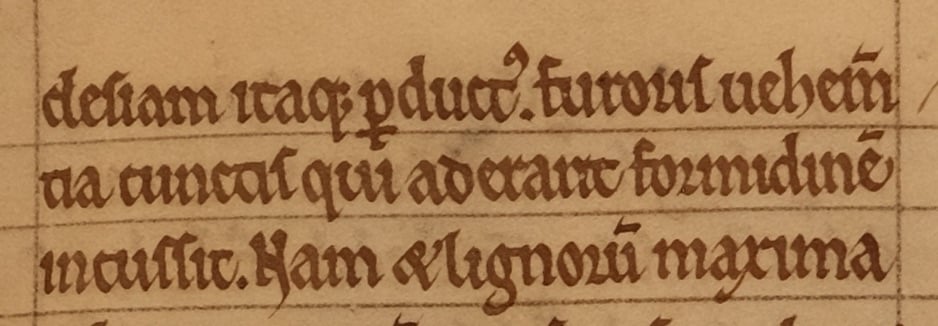 desiam itaqꝫ ꝑductꝰ. furoris uehem̄
tia cunctis qui aderant formidinē
incussit. Nam & lignoꝝū maxima